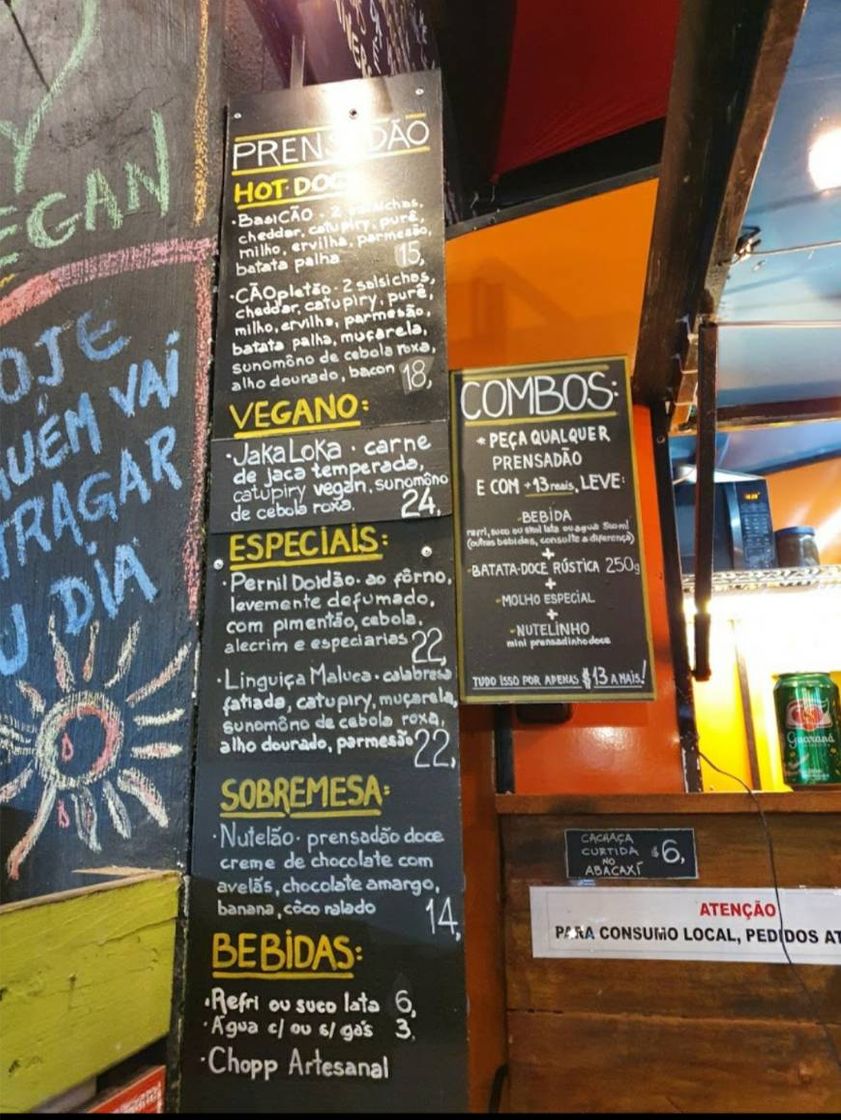 EGAN
OJE
UÉM VAI
TRAGAR
U DIA
PRENSADÃO
HOT DOG
·BASICÃO · 2 salsichas,
cheddar, catupiry, purê,
milho, ervilha, parmesão,
batata palha 15,
·CÃOpletão · 2 salsichas,
cheddar, catupiry, purê,
milho, ervilha, parmesão,
batata palha, muçarela,
sunomôno de cebola roxa,
alho dourado, bacon 18,
VEGANO:
·JAKA LOKA · carne
de jaca temperada,
catupiry vegan, sunomôno
de cebola roxa. 24,
ESPECIAIS:
·Pernil Doidão· ao fôrno,
levemente defumado,
com pimentão, cebola,
alecrim e especiarias 22,
·Linguiça Maluca · calabresa
fatiada, catupiry, muçarela,
sunomôno de cebola roxa,
alho dourado, parmesão 22,
SOBREMESA:
·Nutelão· prensadão doce
creme de chocolate com
avelãs, chocolate amargo,
banana, côco ralado 14,
BEBIDAS:
·Refri ou suco lata 6,
·Água c/ ou s/ gás 3,
·Chopp Artesanal
COMBOS:
* PEÇA QUALQUER
PRENSADÃO
E COM +13 reais, LEVE:
-BEBIDA
(outras bebidas, consulte a diferença)
+
-BATATA-DOCE RÚSTICA 250g
+
-MOLHO ESPECIAL
+
-NUTELINHO
mini prensadinho doce
TUDO ISSO POR APENAS $13 A MAIS!
Guaraná
CACHAÇA
CURTIDA
NO
ABACAXÍ
$6,
ATENÇÃO
PARA CONSUMO LOCAL, PEDIDOS AT